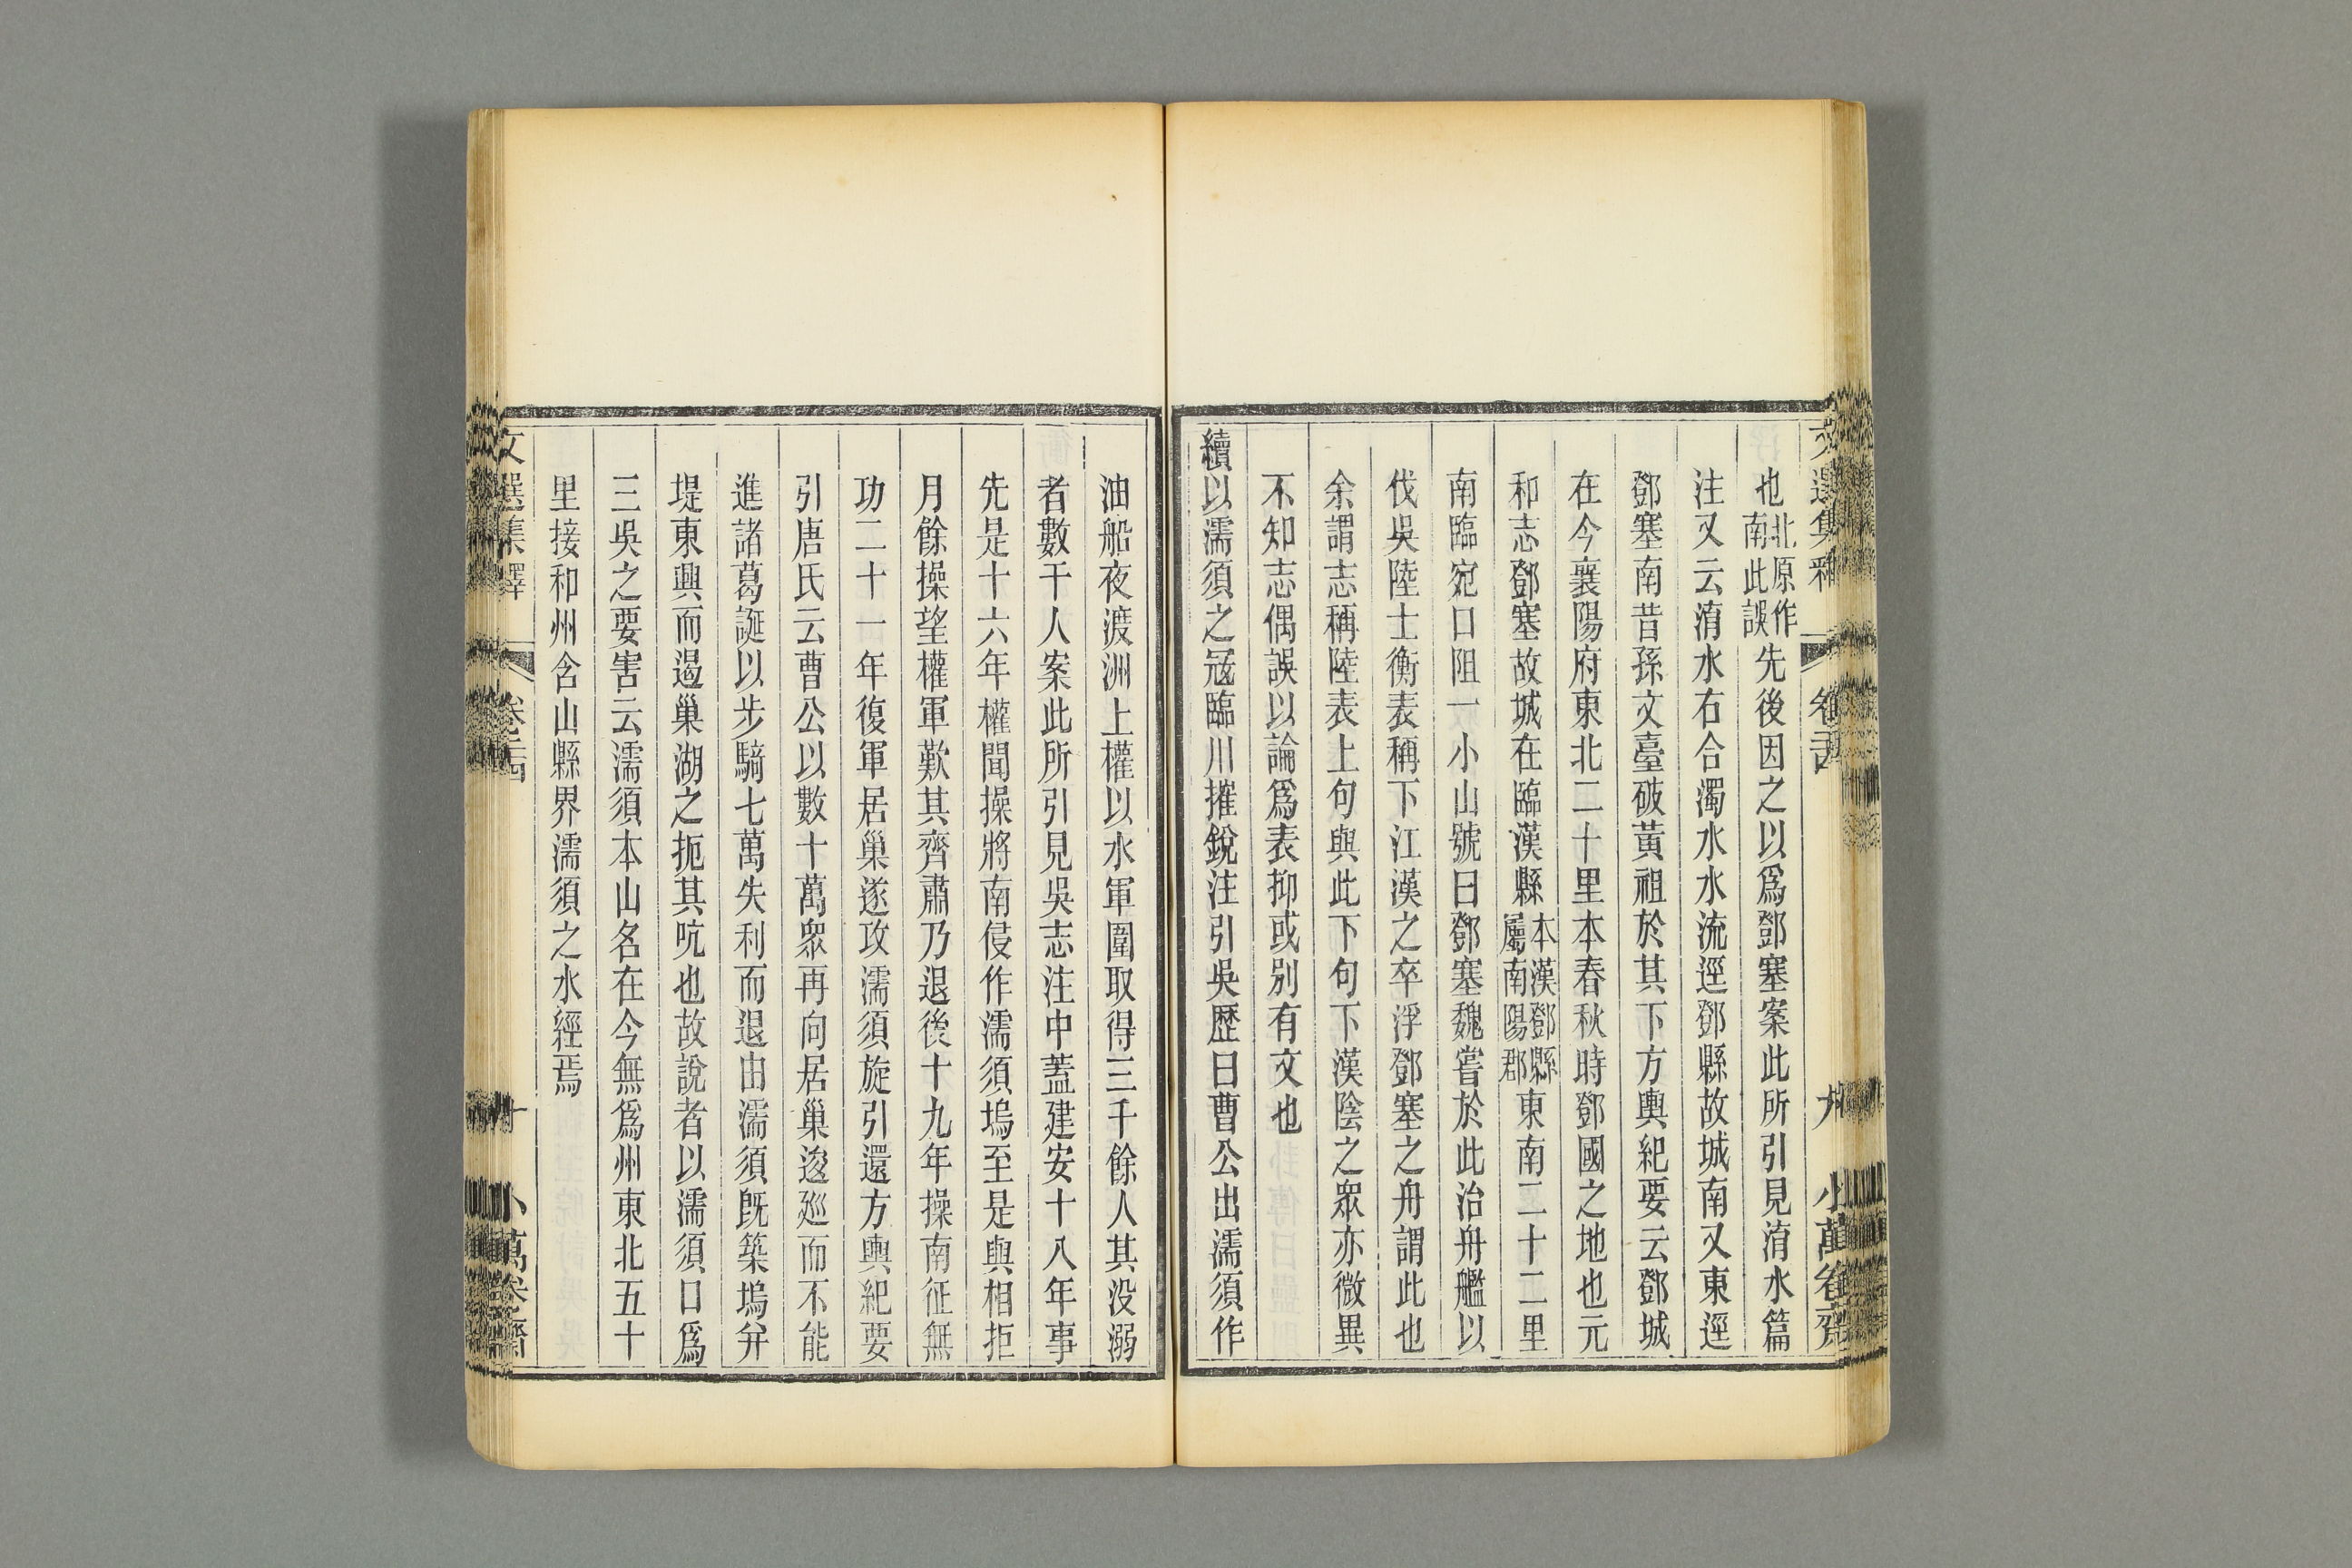 文選集釋 卷二十四 九 小萬卷齋
也北原作南此誤先後因之以爲鄧塞案此所引見淯水篇
注又云淯水右合濁水水流逕鄧縣故城南又東逕
鄧塞南昔孫文臺破黃祖於其下方輿紀要云鄧城
在今襄陽府東北二十里本春秋時鄧國之地也元
和志鄧塞故城在臨漢縣本漢鄧縣屬南陽郡東南二十二里
南臨宛口阻一小山號曰鄧塞魏嘗於此治舟艦以
伐吳陸士衡表稱下江漢之卒浮鄧塞之舟謂此也
余謂志稱陸表上句與此下句下漢陰之眾亦微異
不知志偶誤以論爲表抑或別有文也
續以濡須之寇臨川摧銳注引吳歷曰曹公出濡須作
油船夜渡洲上權以水軍圍取得三千餘人其没溺
者數千人案此所引見吳志注中蓋建安十八年事
先是十六年權聞操將南侵作濡須塢至是與相拒
月餘操望權軍歎其齊肅乃退後十九年操南征無
功二十一年復軍居巢遂攻濡須旋引還方輿紀要
引唐氏云曹公以數十萬眾再向居巢逡廵而不能
進諸葛誕以步騎七萬失利而退由濡須既築塢并
堤東興而遏巢湖之扼其吭也故說者以濡須口爲
三吳之要害云濡須本山名在今無爲州東北五十
里接和州含山縣界濡須之水經焉
文選集釋 卷二十四 十 小萬卷齋